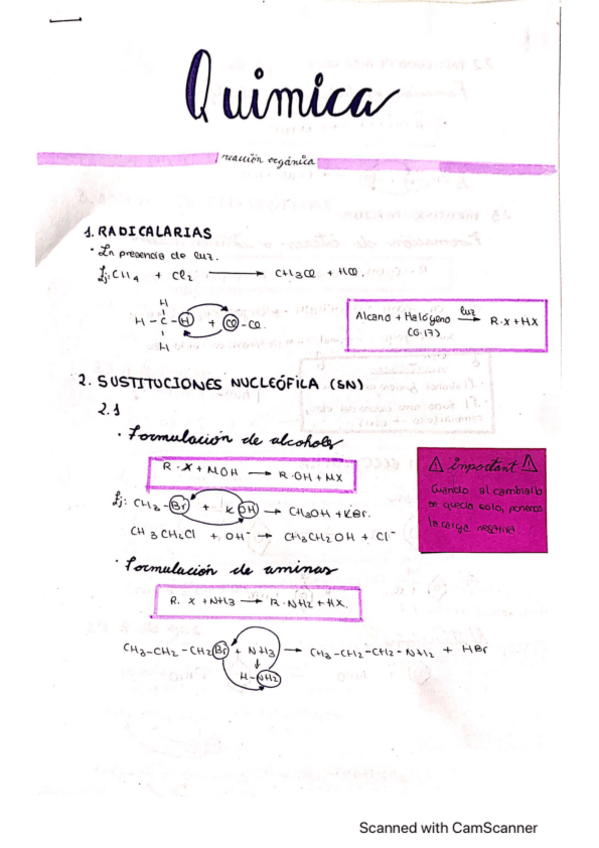 Quimica
reacción orgánica
1. RADICALARIAS
· En presencia de luz.
Ej: CH4 + Cl2 → CH3Cl + HCl.
H
H - C - H + Cl - Cl.
H
Alcano + Halógeno luz → R-X + HX
(G.17)
2. SUSTITUCIONES NUCLEÓFILA (SN)
2.1
· Formulación de alcohols
R · X + MOH → R-OH + MX
Ej: CH3 - Br + K OH → CH3OH + KBr.
CH3CH2Cl + OH⁻ → CH3CH2OH + Cl⁻
⚠ important ⚠
Cuando al cambiarlo
se queda solo, ponemos
la carga negativa
· Formulación de aminas
R. X + NH3 → R-NH2 + HX.
CH3-CH2-CH2 Br + NH3 → CH3-CH2-CH2-NH2 + HBr
H-NH2
Scanned with CamScanner